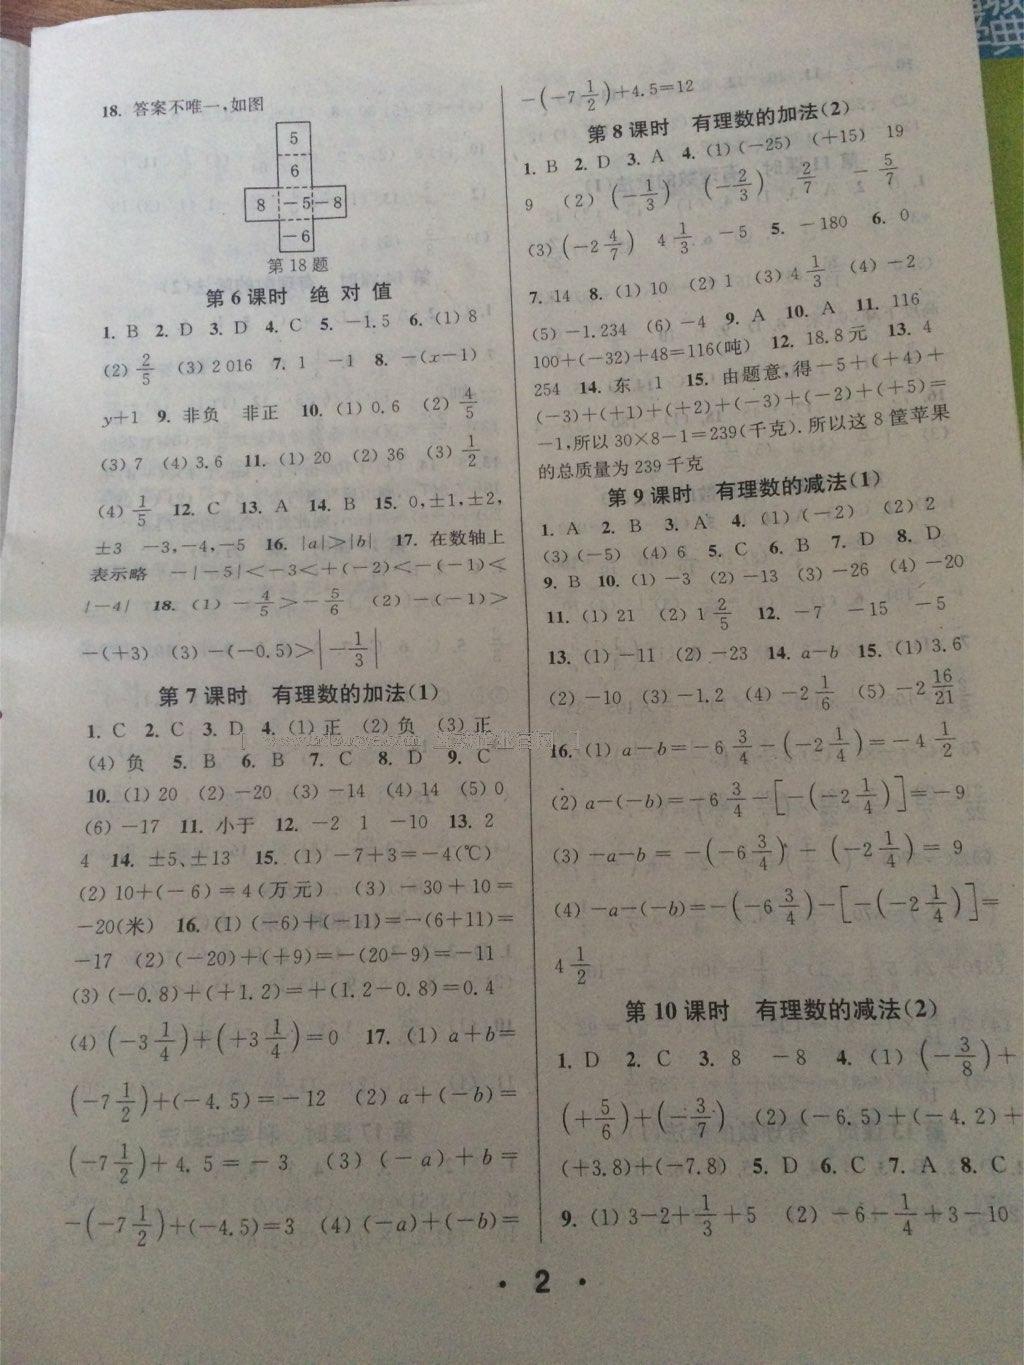 18. 答案不唯一,如图
5
6
8 -5 -8
-6
第18题
第6课时 绝对值
1. B 2. D 3. D 4. C 5. -1.5 6. (1) 8
(2) 2/5 (3) 2 016 7. 1 -1 8. -(x-1)
y+1 9. 非负 非正 10. (1) 0.6 (2) 4/5
(3) 7 (4) 3.6 11. (1) 20 (2) 36 (3) 1/2
(4) 1/5 12. C 13. A 14. B 15. 0,±1,±2,
±3 -3,-4,-5 16. |a|>|b| 17. 在数轴上
表示略 -|-5|<-3<+(-2)<-(-1)<
|-4| 18. (1) -4/5>-5/6 (2) -(-1)>
-(+3) (3) -(-0.5)>|-1/3|
第7课时 有理数的加法(1)
1. C 2. C 3. D 4. (1) 正 (2) 负 (3) 正
(4) 负 5. B 6. B 7. C 8. D 9. C
10. (1) 20 (2) -20 (3) -14 (4) 14 (5) 0
(6) -17 11. 小于 12. -2 1 -10 13. 2
4 14. ±5、±13 15. (1) -7+3=-4(℃)
(2) 10+(-6)=4(万元) (3) -30+10=
-20(米) 16. (1) (-6)+(-11)=-(6+11)=
-17 (2) (-20)+(+9)=-(20-9)=-11
(3) (-0.8)+(+1.2)=+(1.2-0.8)=0.4
(4) (-3 1/4)+(+3 1/4)=0 17. (1) a+b=
(-7 1/2)+(-4.5)=-12 (2) a+(-b)=
(-7 1/2)+4.5=-3 (3) (-a)+b=
-(-7 1/2)+(-4.5)=3 (4) (-a)+(-b)=
-(-7 1/2)+4.5=12
第8课时 有理数的加法(2)
1. B 2. D 3. A 4. (1) (-25) (+15) 19
9 (2) (-1/3) (-2/3) 2/7 -5/7
(3) (-2 4/7) 4 1/3 -5 5. -180 6. 0
7. 14 8. (1) 10 (2) 1 (3) 4 1/3 (4) -2
(5) -1.234 (6) -4 9. A 10. A 11. 116
100+(-32)+48=116(吨) 12. 18.8元 13. 4
254 14. 东 1 15. 由题意,得-5+(+4)+
(-3)+(+1)+(+2)+(-3)+(-2)+(+5)=
-1,所以30×8-1=239(千克).所以这8筐苹果
的总质量为239千克
第9课时 有理数的减法(1)
1. A 2. B 3. A 4. (1) (-2) (2) 2
(3) (-5) (4) 6 5. C 6. B 7. D 8. D
9. B 10. (1) -3 (2) -13 (3) -26 (4) -20
11. (1) 21 (2) 1 2/5 12. -7 -15 -5
13. (1) -11 (2) -23 14. a-b 15. (1) 3.6
(2) -10 (3) -1.2 (4) -2 1/6 (5) -2 16/21
16. (1) a-b=-6 3/4-(-2 1/4)=-4 1/2
(2) a-(-b)=-6 3/4-[-(-2 1/4)]=-9
(3) -a-b=-(-6 3/4)-(-2 1/4)=9
(4) -a-(-b)=-(-6 3/4)-[-(-2 1/4)]=
4 1/2
第10课时 有理数的减法(2)
1. D 2. C 3. 8 -8 4. (1) (-3/8)+
(+5/6)+(-3/7) (2) (-6.5)+(-4.2)+
(+3.8)+(-7.8) 5. D 6. C 7. A 8. C
9. (1) 3-2+1/3+5 (2) -6-1/4+3-10
· 2 ·